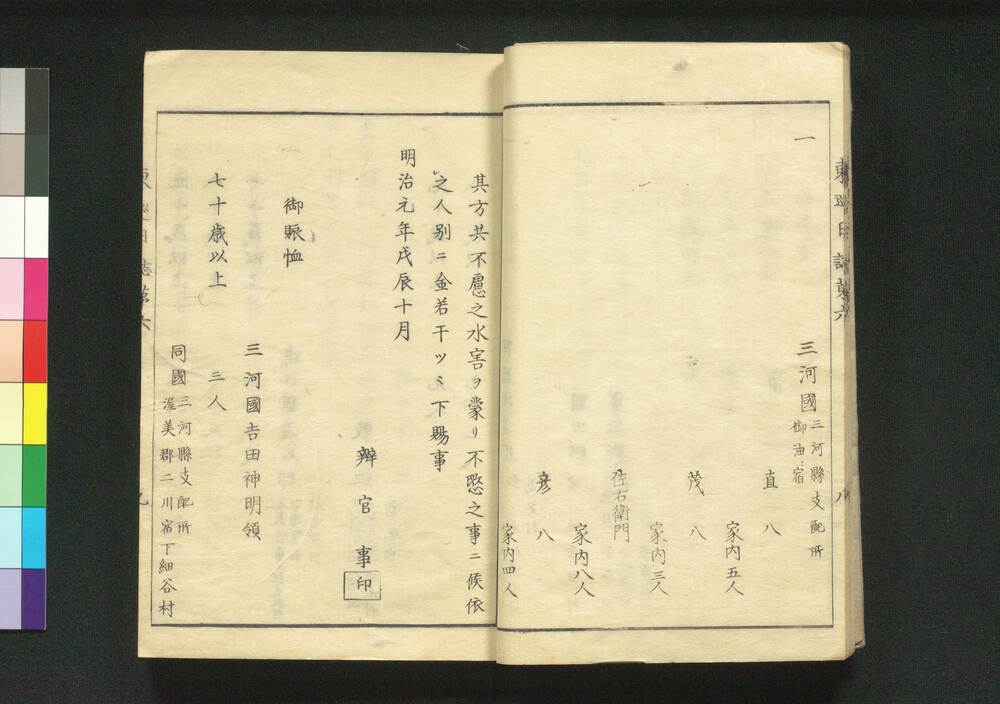 東巡日誌第六
八
一
三河國
三河縣支配所
御油宿
直八
家内五人
茂八
家内三人
佐右衛門
家内八人
彦八
家内四人
其方共不慮之水害ヲ蒙リ不愍之事ニ候依
之人別ニ金若干ツヽ下賜事
明治元年戊辰十月
辨官事
印
御賑恤
三河國吉田神明領
七十歳以上
三人
同國
三河縣支配所
渥美郡二川宿丁細谷村